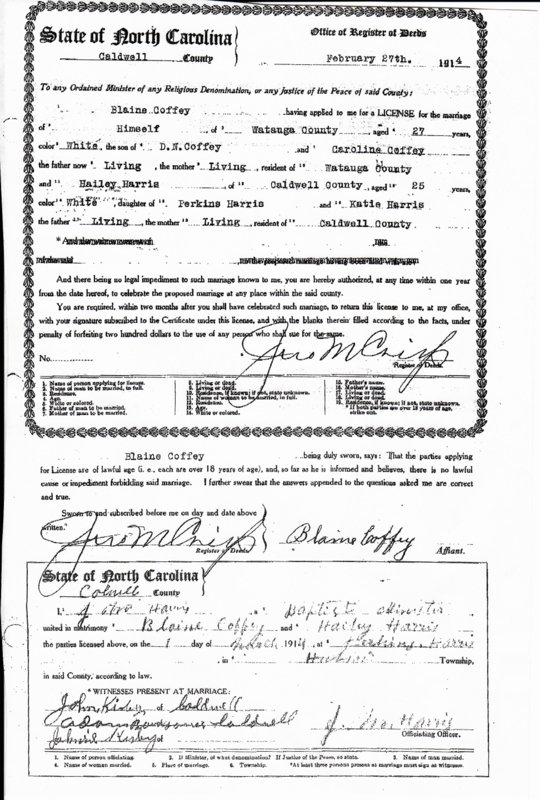 State of North Carolina
Caldwell County
Office of Register of Deeds
February 27th. 1914
To any Ordained Minister of any Religious Denomination, or any Justice of the Peace of said County:
Blaine Coffey having applied to me for a LICENSE for the marriage
of Himself of Watauga County aged 27 years,
color White, the son of D.N.Coffey and Caroline Coffey
the father now Living, the mother Living, resident of Watauga County
and Hailey Harris of Caldwell County, aged 25 years,
color White, daughter of Perkins Harris and Katie Harris
the father Living, the mother Living, resident of Caldwell County
And there being no legal impediment to such marriage known to me, you are hereby authorized, at any time within one year
from the date hereof, to celebrate the proposed marriage at any place within the said county.
You are required, within two months after you shall have celebrated such marriage, to return this license to me, at my office,
with your signature subscribed to the Certificate under this license, and with the blanks therein filled according to the facts, under
penalty of forfeiting two hundred dollars to the use of any person who shall sue for the same.
No.
Register of Deeds.
1. Name of person applying for license.
2. Name of man to be married, in full.
3. Residence.
4. Age.
5. White or colored.
6. Father of man to be married.
7. Mother of man to be married.
8. Living or dead.
9. Living or dead.
10. Residence, if known; if not, state unknown.
11. Name of woman to be married, in full.
12. Residence.
13. Age.
14. White or colored.
15. Father's name.
16. Mother's name.
17. Living or dead.
18. Living or dead.
19. Residence, if known; if not, state unknown.
* If both parties are over 18 years of age, strike out.
Blaine Coffey being duly sworn, says: That the parties applying
for License are of lawful age (i. e., each are over 18 years of age), and, so far as he is informed and believes, there is no lawful
cause or impediment forbidding said marriage. I further swear that the answers appended to the questions asked me are correct
and true.
Sworn to and subscribed before me on day and date above
written.
Register of Deeds.
Blaine Coffey
Affiant.
State of North Carolina
County
I, Harris a Baptist Minister
united in matrimony Blaine Coffey and Hailey Harris
the parties licensed above, on the 1 day of March 1914, at Harris
in Township,
in said County, according to law.
* WITNESSES PRESENT AT MARRIAGE:
John Kirby of Caldwell
Caldwell
Kirby of
Harris
Officiating Officer.
1. Name of person officiating. 2. If Minister, of what denomination? If Justice of the Peace, so state. 3. Name of man married.
4. Name of woman married. 5. Place of marriage. 6. Township. *At least three persons present at marriage must sign as witnesses.